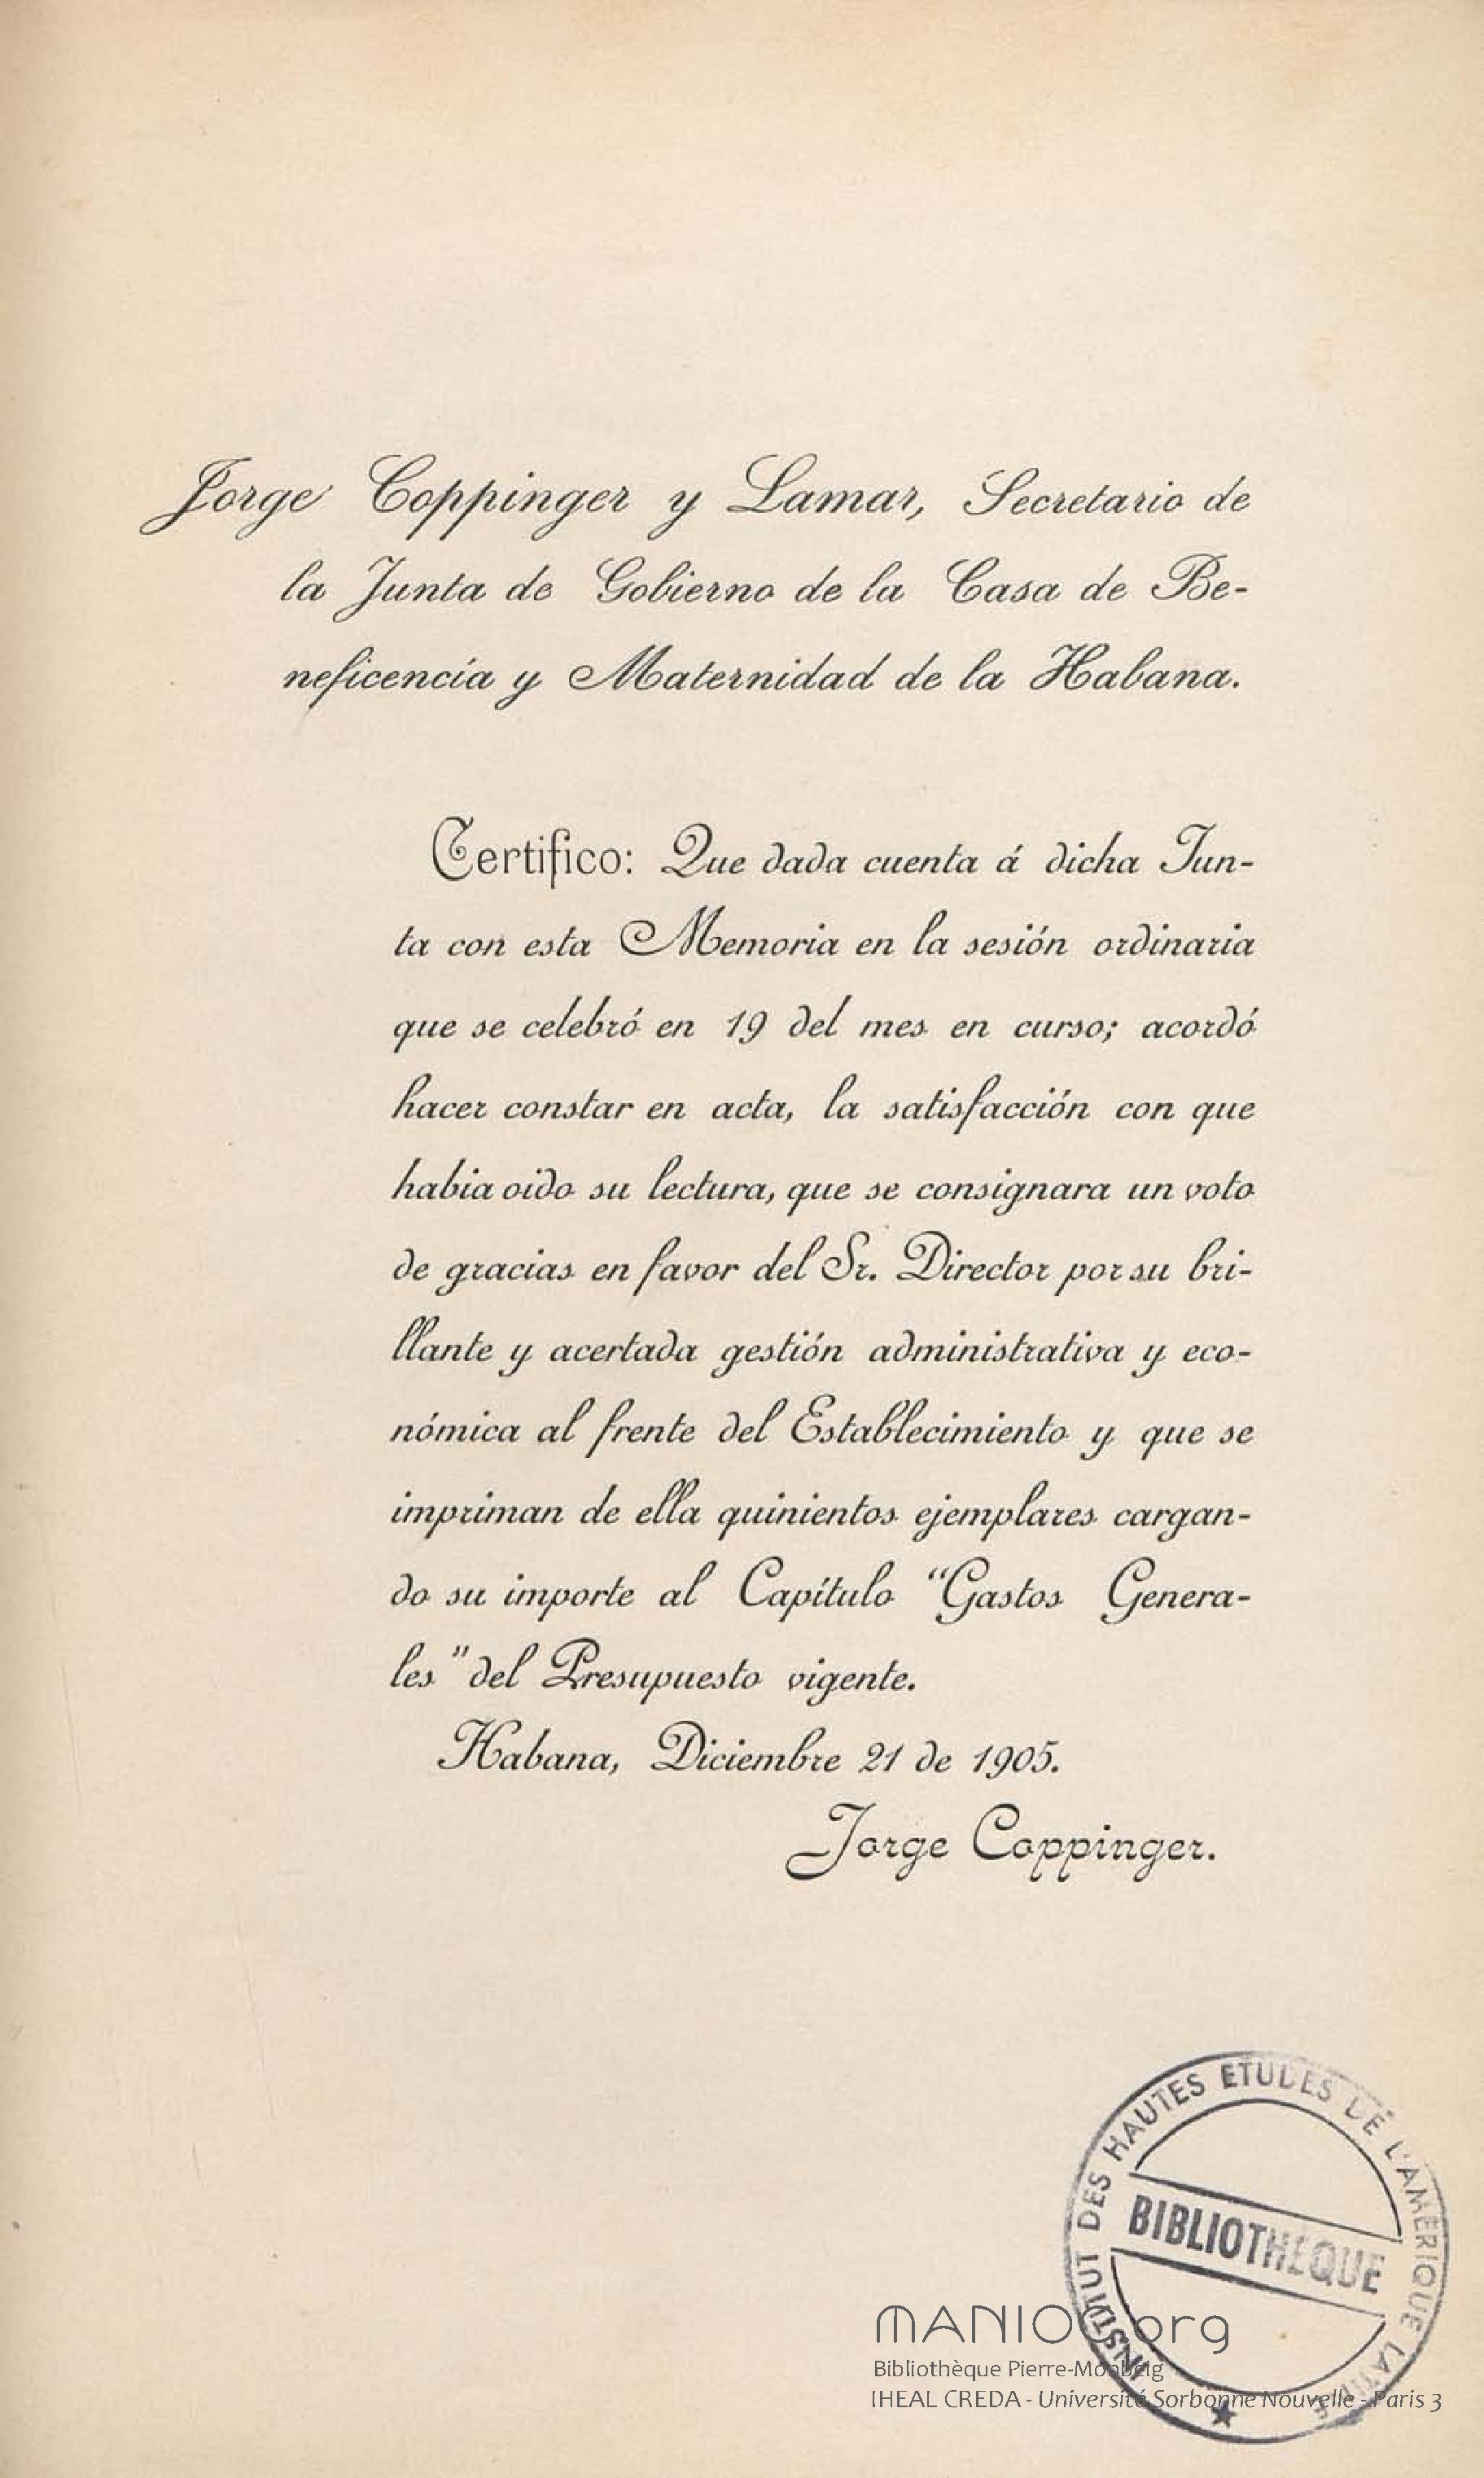 Jorge Coppinger y Lamar, Secretario de
la Junta de Gobierno de la Casa de Be-
neficencia y Maternidad de la Habana.
Certifico: Que dada cuenta á dicha Jun-
ta con esta Memoria en la sesión ordinaria
que se celebró en 19 del mes en curso; acordó
hacer constar en acta, la satisfacción con que
habia oido su lectura, que se consignara un voto
de gracias en favor del Sr. Director por su bri-
llante y acertada gestión administrativa y eco-
nómica al frente del Establecimiento y que se
impriman de ella quinientos ejemplares cargan-
do su importe al Capítulo "Gastos Genera-
les" del Presupuesto vigente.
Habana, Diciembre 21 de 1905.
Jorge Coppinger.
INSTITUT DES HAUTES ETUDES DE L'AMÉRIQUE LATINE
BIBLIOTHEQUE
MANIOC.org
Bibliothèque Pierre-Monbeig
IHEAL CREDA - Université Sorbonne Nouvelle - Paris 3